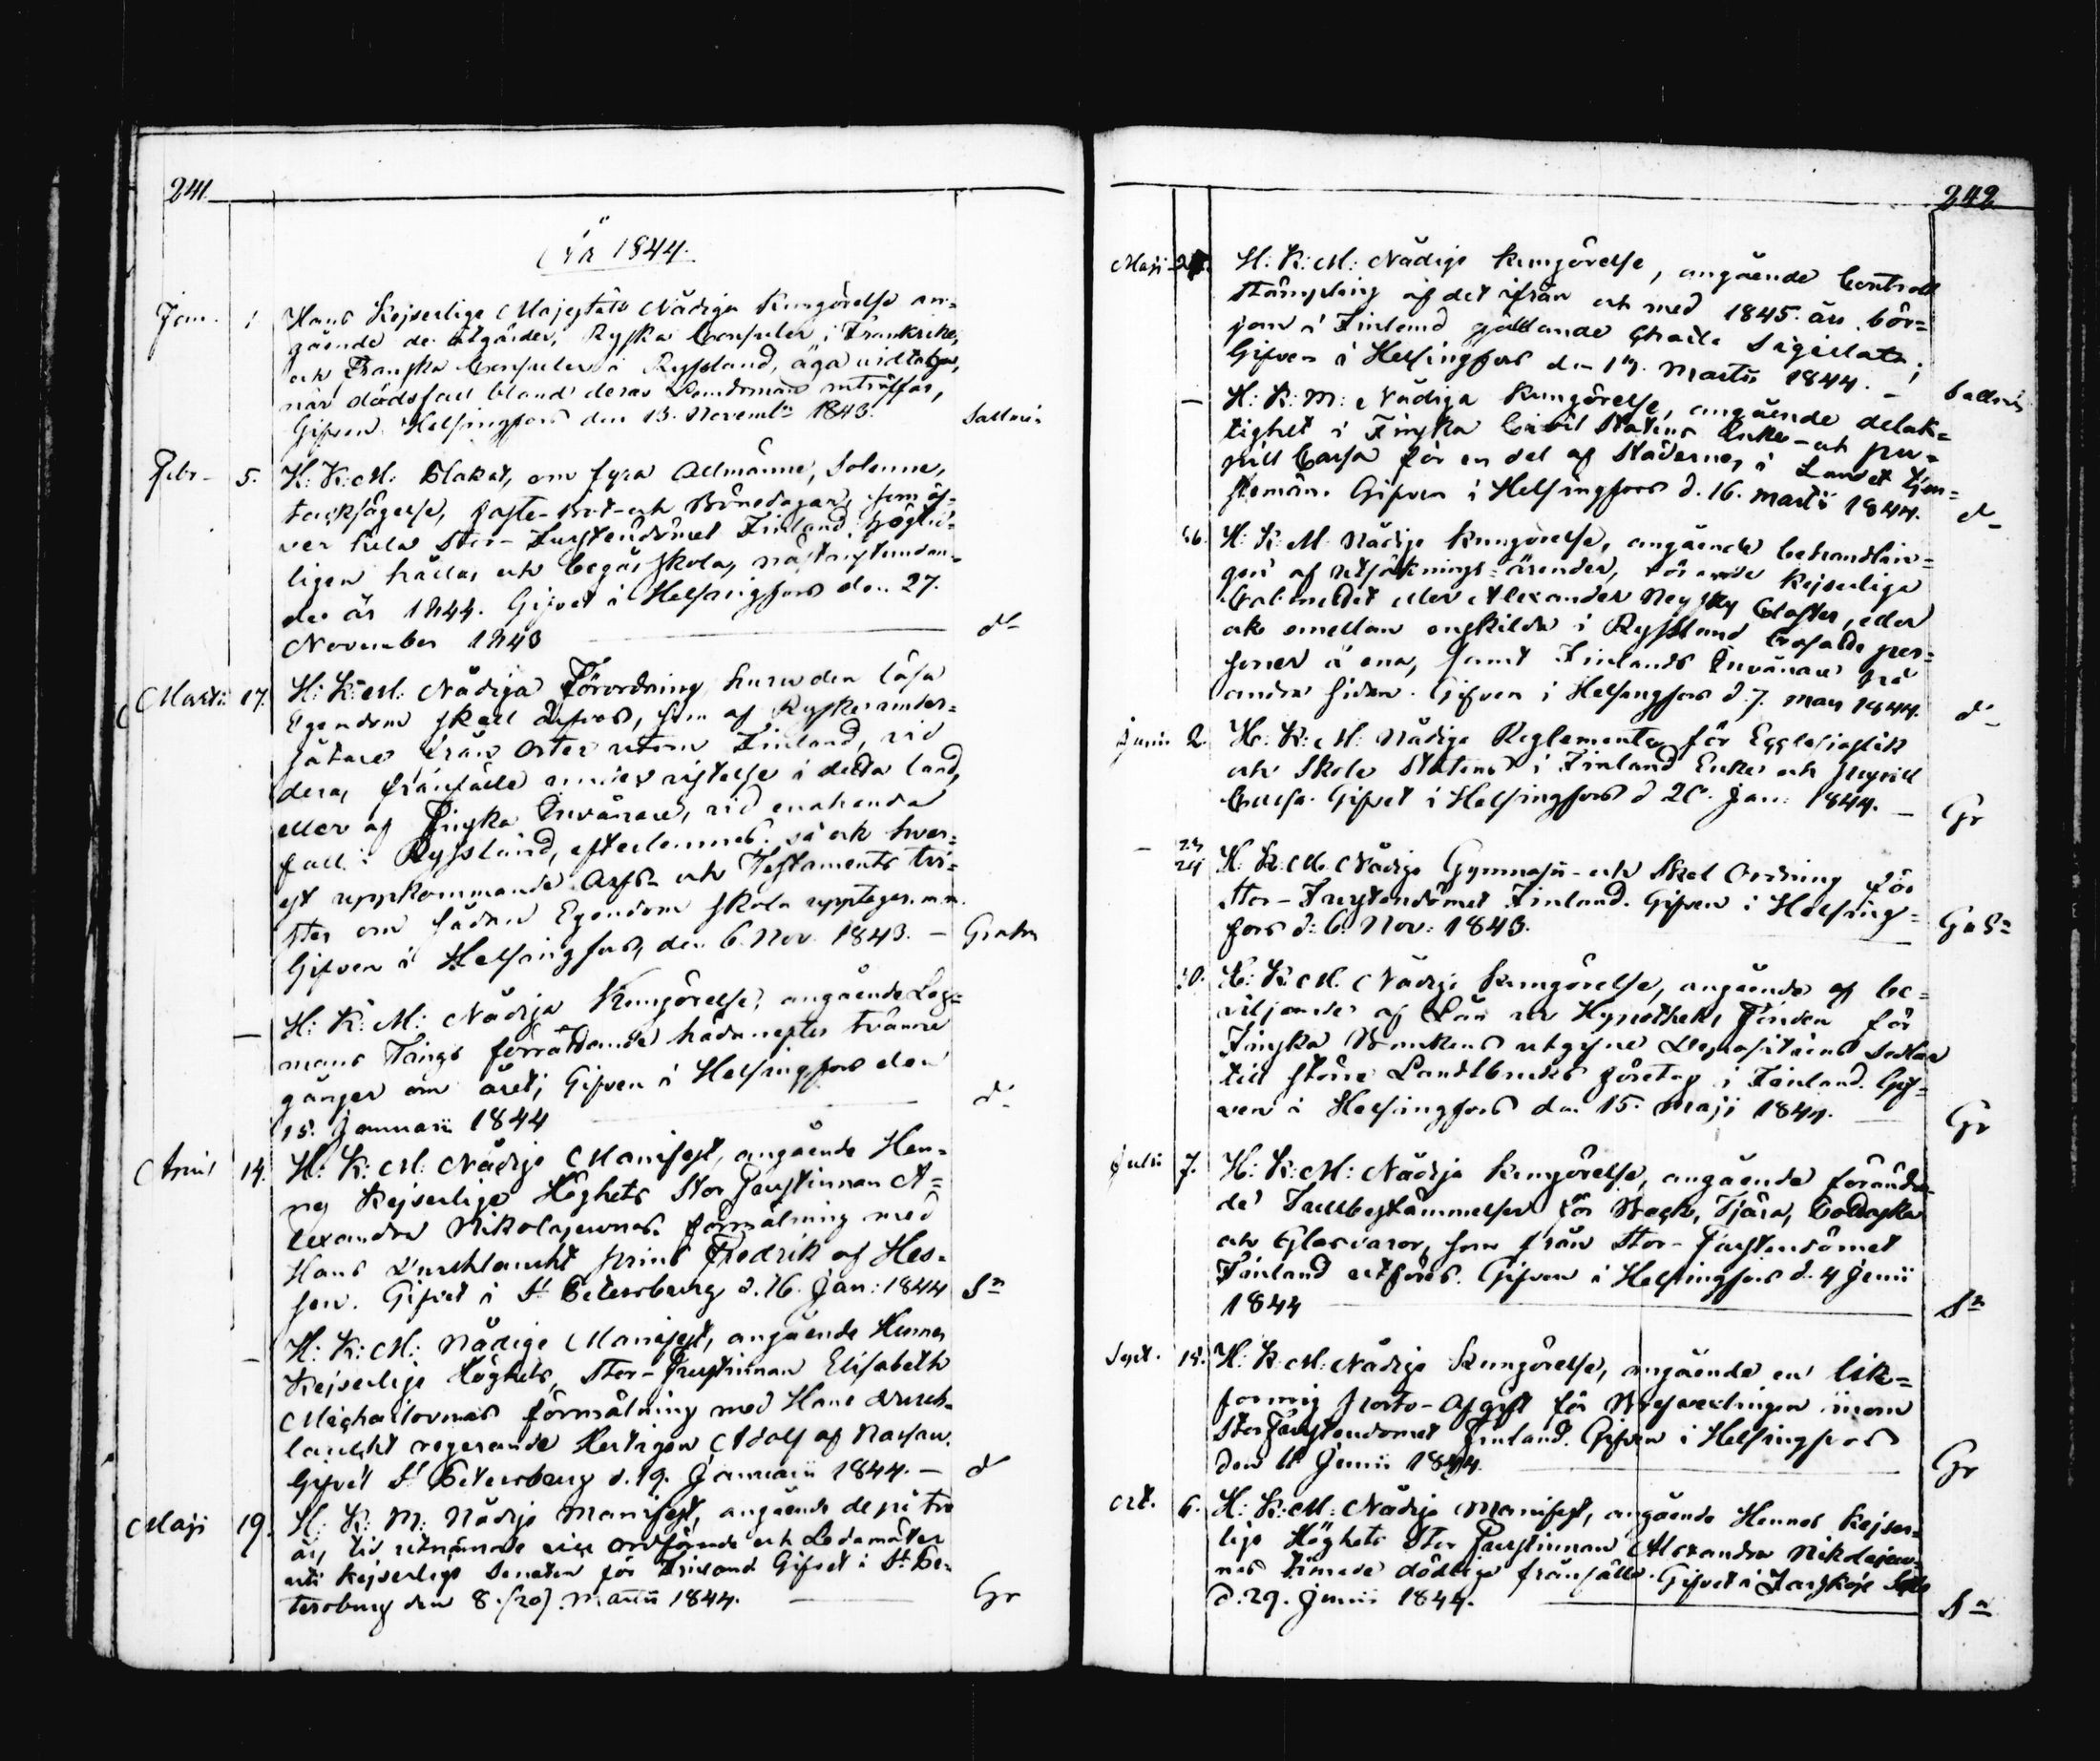 241.
År 1844.
Jan. 1 Hans Kejserlige Majestäts Nådiga Kungörelse an=
gående de åtgärder, Ryska Consuler i Frankrike,
och Franska Consuler i Ryssland, äga vidtaga,
när dödsfall bland deras Landsmän inträffar,
Gifven Helsingfors den 13. Novemb. 1843. Sallmén
Febr. 5. H. K. M. Plakat, om fyra Allmänne, Solenne,
tacksägelse, faste- Bot- och Bönedagar, som öf=
ver hela Stor-Furstendömet Finland högtid=
ligen hållas och begås skola, nästinstundan=
de år 1844. Gifvet i Helsingfors den 27.
November 1843 — d:o
Martii 17. H: K: M: Nådiga Förordning huru den lösa
Egendom skall ärfvas, som af Ryske under=
såtare från Orter utom Finland, vid
deras frånfälle under vistelse i detta land,
eller af Finska Invånare, vid enahanda
fall i Ryssland, efterlemnas. så ock hvar=
est uppkommande Arfs- och Testaments tvi=
ster om sådan Egendom skola upptagas m.m.
Gifven i Helsingfors, den 6. Nov. 1843. —
— H: K: M: Nådiga Kungörelse, angående Lag=
mans Tings förrättande hädanefter tvänne
gånger om året; Gifven i Helsingfors den
15. Januarii 1844 d:o
April 14. H: K: M: Nådige Manifest, angående Hen=
nes Kejserliga Höghets Stor Furstinnan A=
lexandra Nikolajewnas förmälning med
Hans Durchlaucht prins Fredrik af Hes=
sen. Gifvet i St Petersburg d. 16. Jan: 1844 Sn
— H: K: M: Nådige Manifest, angående Hennes
Kejserlige Höghets, Stor-Furstinnan Elisabeth
Michailovnas förmälning med Hans Durch=
laucht regerande Hertigen Adolf af Nassau.
Gifvet St Petersburg d. 19. Januarii 1844. — d:o
Maji 19. H: K: M: Nådige Manifest, angående de på tre
års tid utnämnde vice Ordförande och Ledamöter
uti Kejserlige Senaten för Finland Gifvet i St. Pe=
tersburg den 8. (20) Martii 1844. — Gr
242
Maji H: K: M: Nådige Kungörelse, angående Controll
stämpling af det ifrån och med 1845. års bör=
jan i Finland gällande Charta Sigillata;
Gifven i Helsingfors den Martii 1844. — Sallmén
— H: K: M: Nådiga Kungörelse, angående delak=
tighet i Finska Civil Statens Enke- och pu=
pill Cassa för en del af Städernes i Landet tjen=
stemän. Gifven i Helsingfors d. 16. Martii 1844. d:o
26. H: K: M. Nådige Kungörelse, angående behandlin=
gen af utsöknings-ärender, rörande Kejserliga
Cabinettet eller Alexander Newsky Closter, eller
ock emellan enskilde i Ryssland bosatte per=
soner å ena, samt Finlands Invånare på
andra sidan. Gifven i Helsingfors d. 7. Maji 1844. d:o
Junii 2. H: K: M: Nådige Reglemente för Ecclesiastik
och Skole Statens i Finland Enke och pupill
Cassa. Gifvet i Helsingfors d 20. Jan: 1844. — Gr
— 23 24 H: K: M. Nådige Gymnasii- och Skol Ordning för
Stor-Furstendömet Finland. Gifven i Helsing=
fors d: 6. Nov: 1843. —
30. H: K: M. Nådige Kungörelse, angående af be=
viljande af Lån ur Hypotheks Fonden för
Finska Bankens utgifne Depositions sedlar
till större Landtbruks företag i Finland. Gif=
ven i Helsingfors den 15. Maji 1844. — Gr
Julii 7. H: K: M: Nådige Kungörelse, angående förändra
de Tullbestämmelser för Beck, Tjära,
och Glasvaror, som från Stor-Furstendömet
Finland utföras. Gifven i Helsingfors d. 4 Junii
1844 — Sn
Sept. 15. H: K: M: Nådige Kungörelse, angående en lik=
formig porto-afgift för Brefvexlingen inom
Stor Furstendömet Finland. Gifven i Helsingfors
den 11 Junii 1844. — Gr
Oct. 6. H: K: M: Nådige Manifest, angående Hennes Kejser=
lige Höghets Stor Furstinnan Alexandra Nikolajew=
nas timade dödliga frånfälle. Gifvet i Zarskoje Selo
d. 29. Junii 1844. — Sn